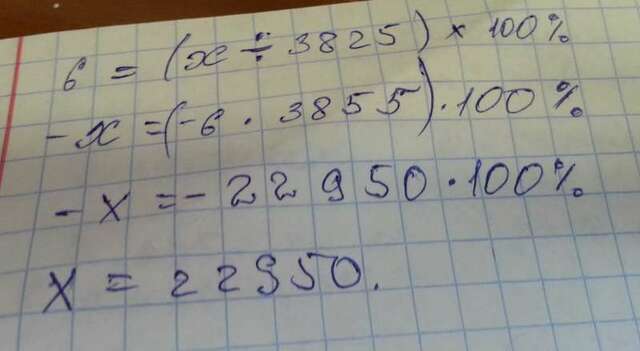 6 = (x ÷ 3825) × 100%
-x = (-6 · 3855) · 100%
-x = -22950 · 100%
x = 22950.